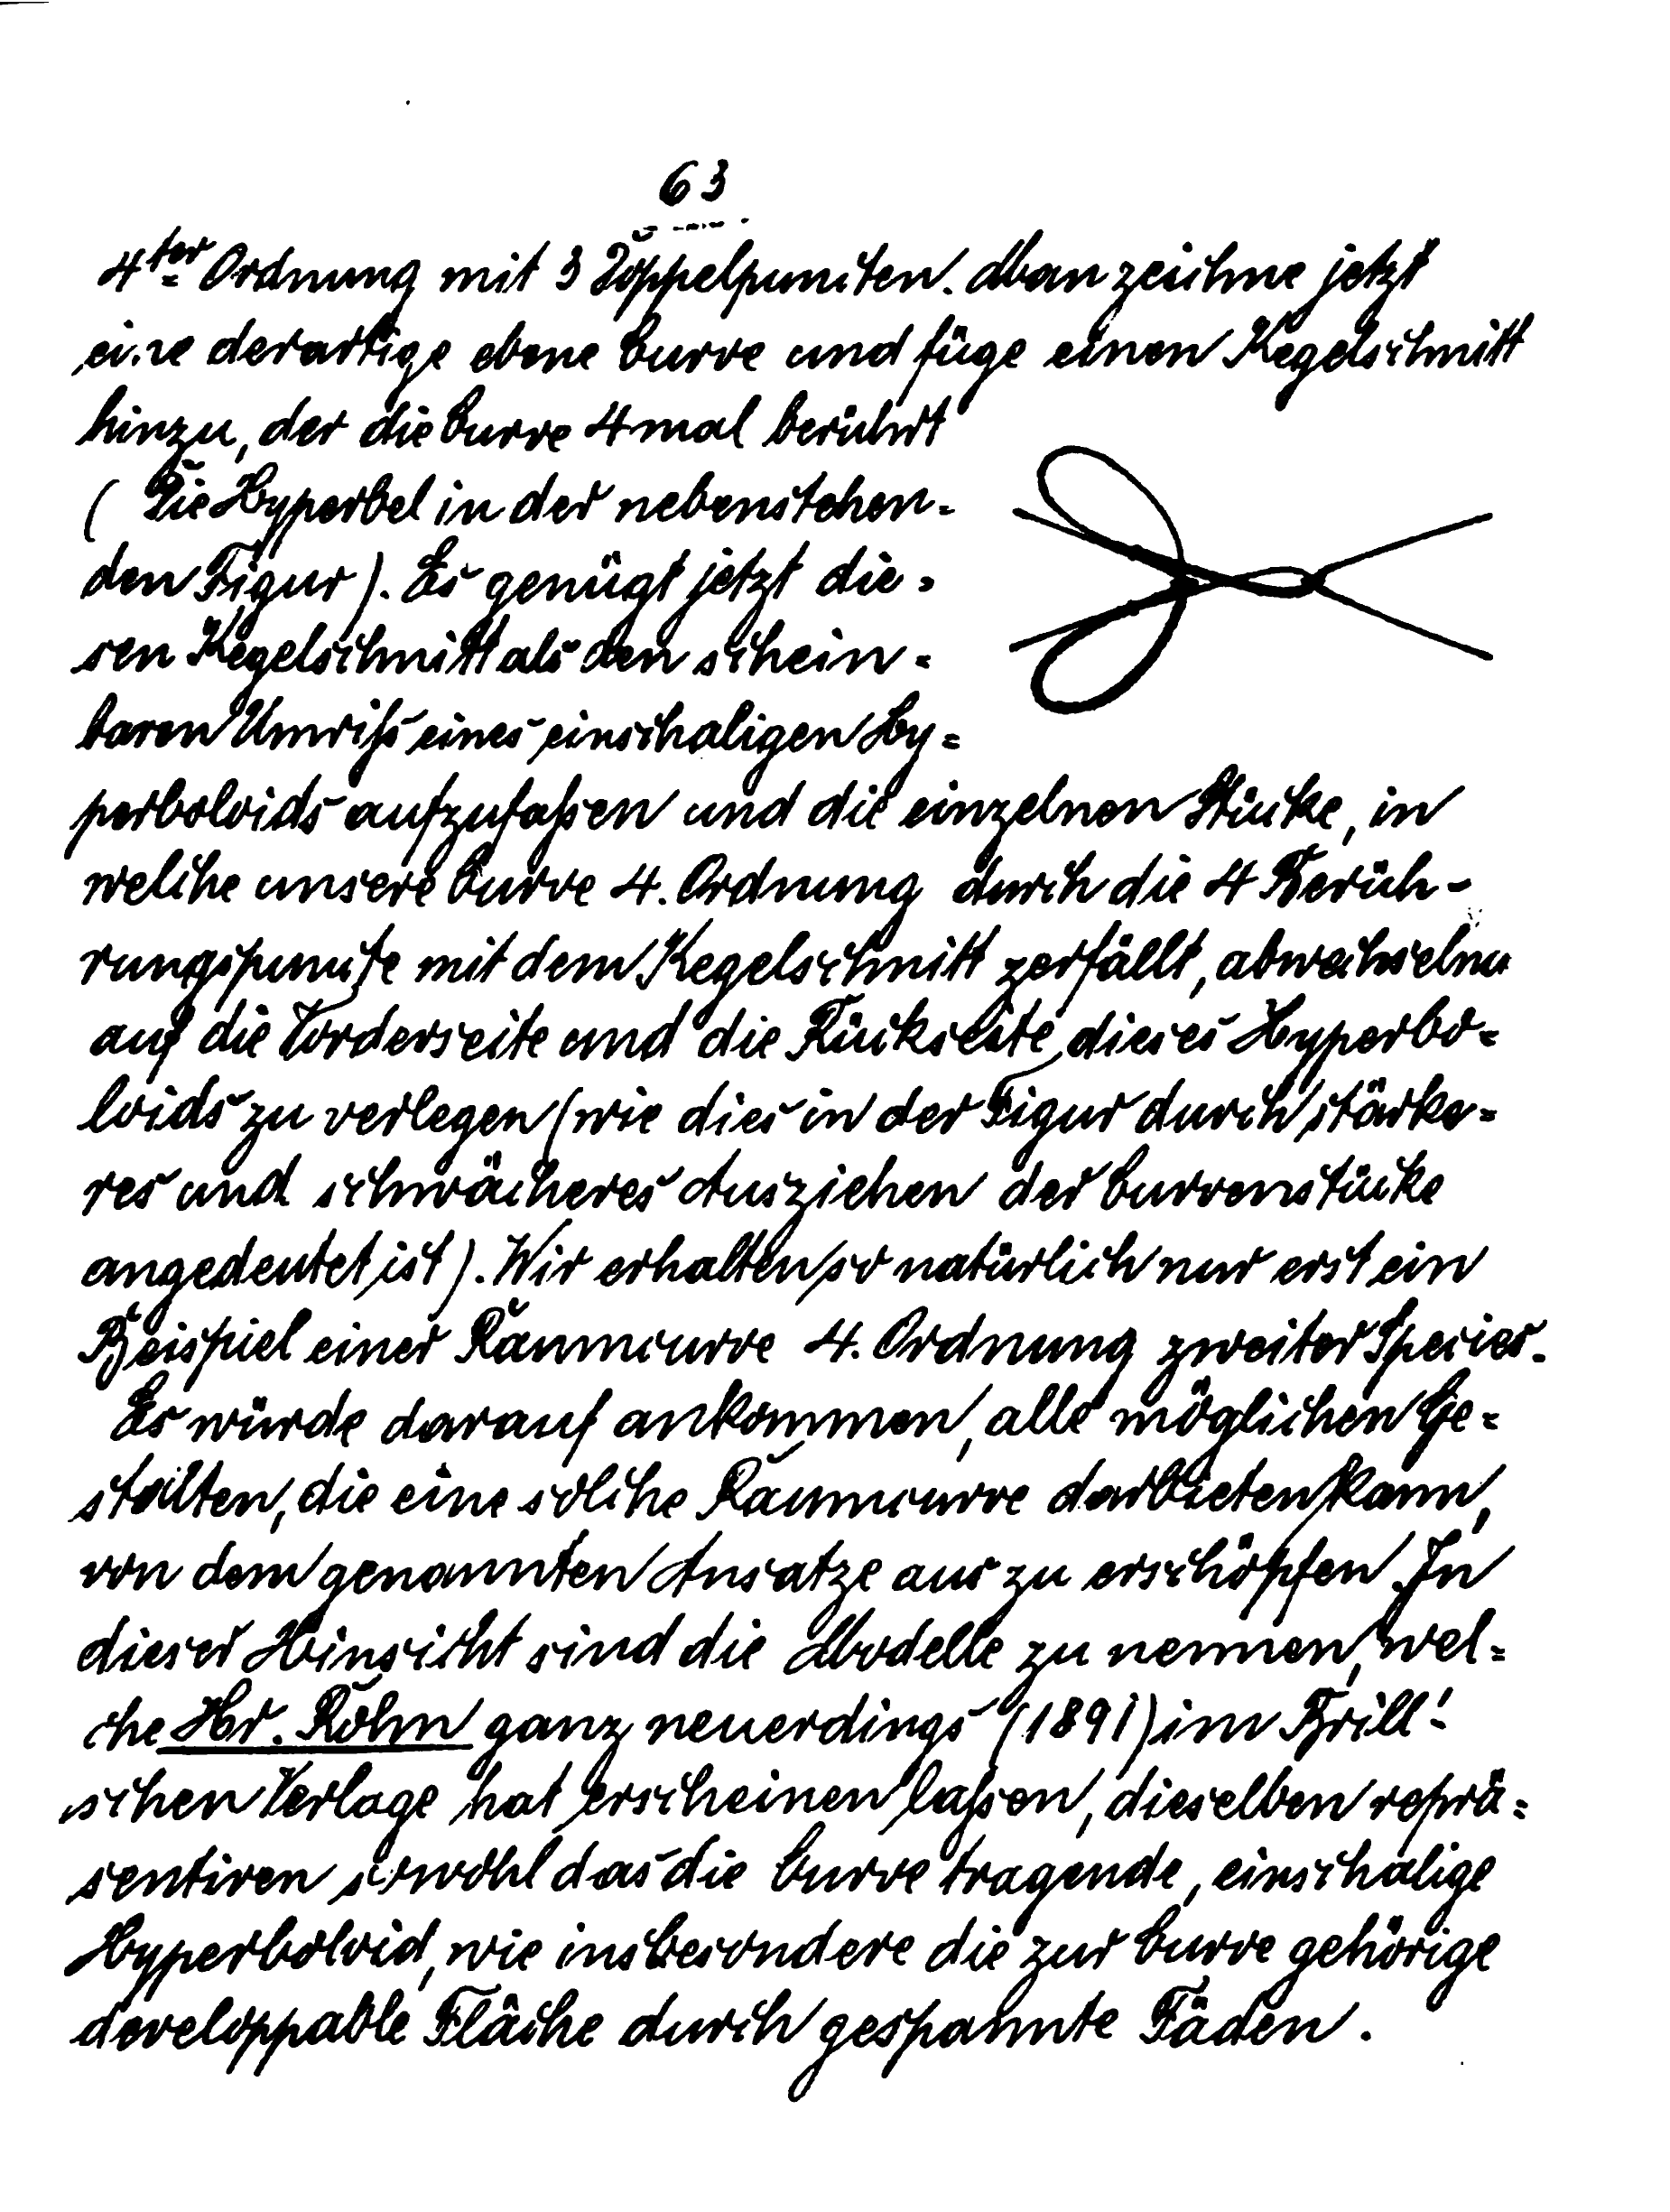 63
4ter Ordnung mit 3 Doppelpuncten. Man zeichne jetzt
eine derartige ebene Curve und füge einen Kegelschnitt
hinzu, der die Curve 4mal berührt
( Die Hyperbel in der nebenstehen=
den Figur). Es genügt jetzt die=
sen Kegelschnitt als den schein=
baren Umriß eines einschaligen Hy=
perboloids aufzufaßen und die einzelnen Stücke, in
welche unsere Curve 4. Ordnung durch die 4 Berüh-
rungspuncte mit dem Kegelschnitt zerfällt, abwechselnd
auf die Vorderseite und die Rückseite dieses Hyperbo=
loids zu verlegen (wie dies in der Figur durch stärke=
res und schwächeres Ausziehen der Curvenstücke
angedeutet ist). Wir erhalten so natürlich nur erst ein
Beispiel einer Raumcurve 4. Ordnung zweiter Species.
Es würde darauf ankommen, alle möglichen Ge=
stalten, die eine solche Raumcurve darbieten kann,
von dem genannten Ansatze aus zu erschöpfen. In
dieser Hinsicht sind die Modelle zu nennen, wel=
che Hr. Rohn ganz neuerdings (1891) im Brill'
schen Verlage hat erscheinen laßen, dieselben reprä=
sentiren sowohl das die Curve tragende, einschalige
Hyperboloid, wie insbesondere die zur Curve gehörige
developpable Fläche durch gespannte Fäden.